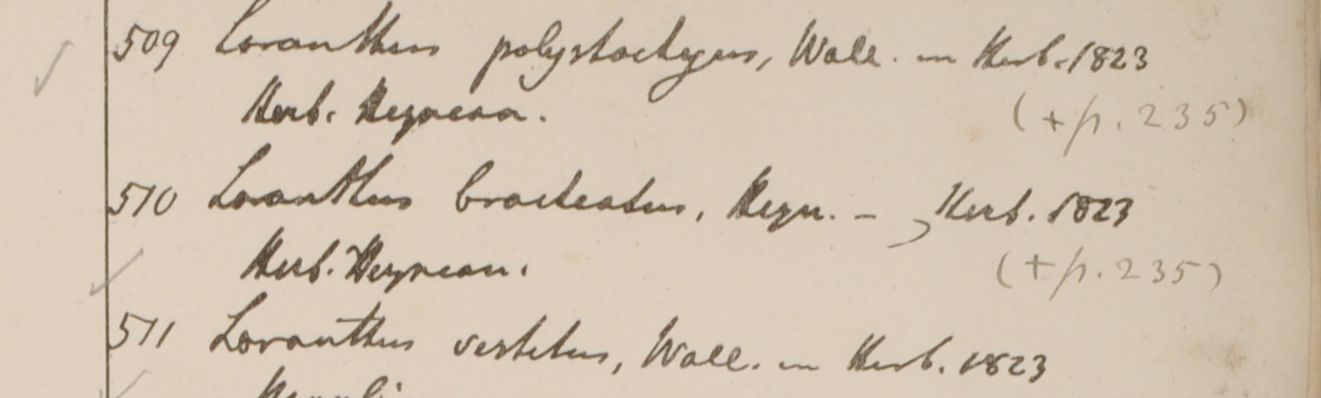 509 Loranthus polystachyus, Wall. in Herb. 1823
Herb. Heynean. (+p. 235)
510 Loranthus bracteatus, Heyn. – Herb. 1823
Herb. Heynean. (+p. 235)
511 Loranthus vestitus, Wall. in Herb. 1823